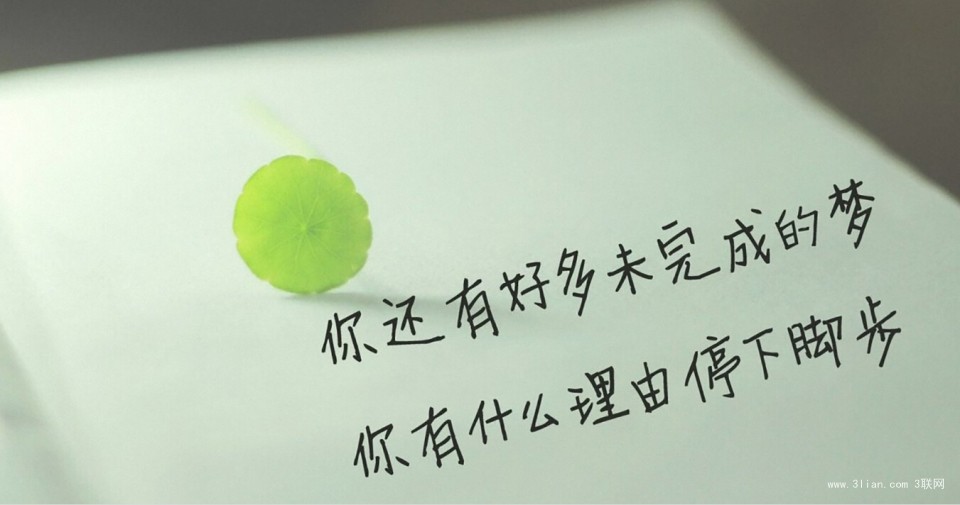 你还有好多未完成的梦
你有什么理由停下脚步
www.3lian.com 3联网